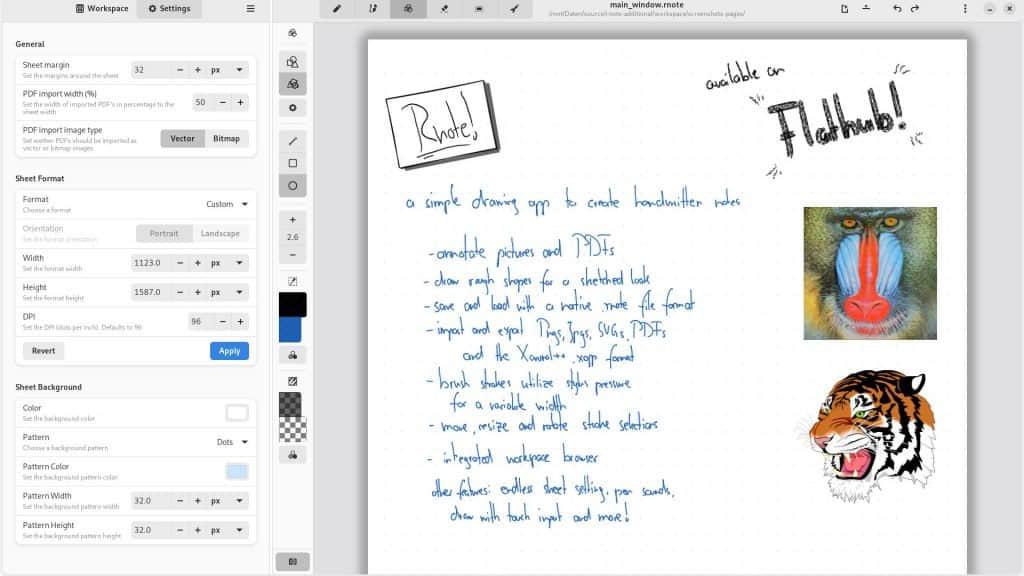 Workspace
Settings
main_window.rnote
/mnt/Daten/source/rnote-additional/workspace/screenshots-pages/
General
Sheet margin
Set the margins around the sheet
32 − + px
PDF import width (%)
Set the width of imported PDF's in percentage to the
sheet width
50 − +
PDF import image type
Set wether PDFs should be imported as
vector or bitmap images
Vector Bitmap
Sheet Format
Format
Choose a format
Custom
Orientation
Set the format orientation
Portrait Landscape
Width
Set the format width
1123.0 − + px
Height
Set the format height
1587.0 − + px
DPI
Set the DPI (dots per inch). Defaults to 96
96 − +
Revert Apply
Sheet Background
Color
Set the background color
Pattern
Choose a background pattern
Dots
Pattern Color
Set the background pattern color
Pattern Width
Set the background pattern width
32.0 − + px
Pattern Height
Set the background pattern height
32.0 − + px
+
2.6
−
Rnote!
available on
Flathub!
a simple drawing app to create handwritten notes
- annotate pictures and PDFs
- draw rough shapes for a sketched look
- save and load with a native .rnote file format
- import and export Pngs, Jpgs, SVGs, PDFs
and the Xournal++ .xopp format
- brush strokes utilize stylus pressure
for a variable width
- move, resize and rotate stroke selections
- integrated workspace browser
other features: endless sheet setting, pen sounds,
draw with touch input and more!